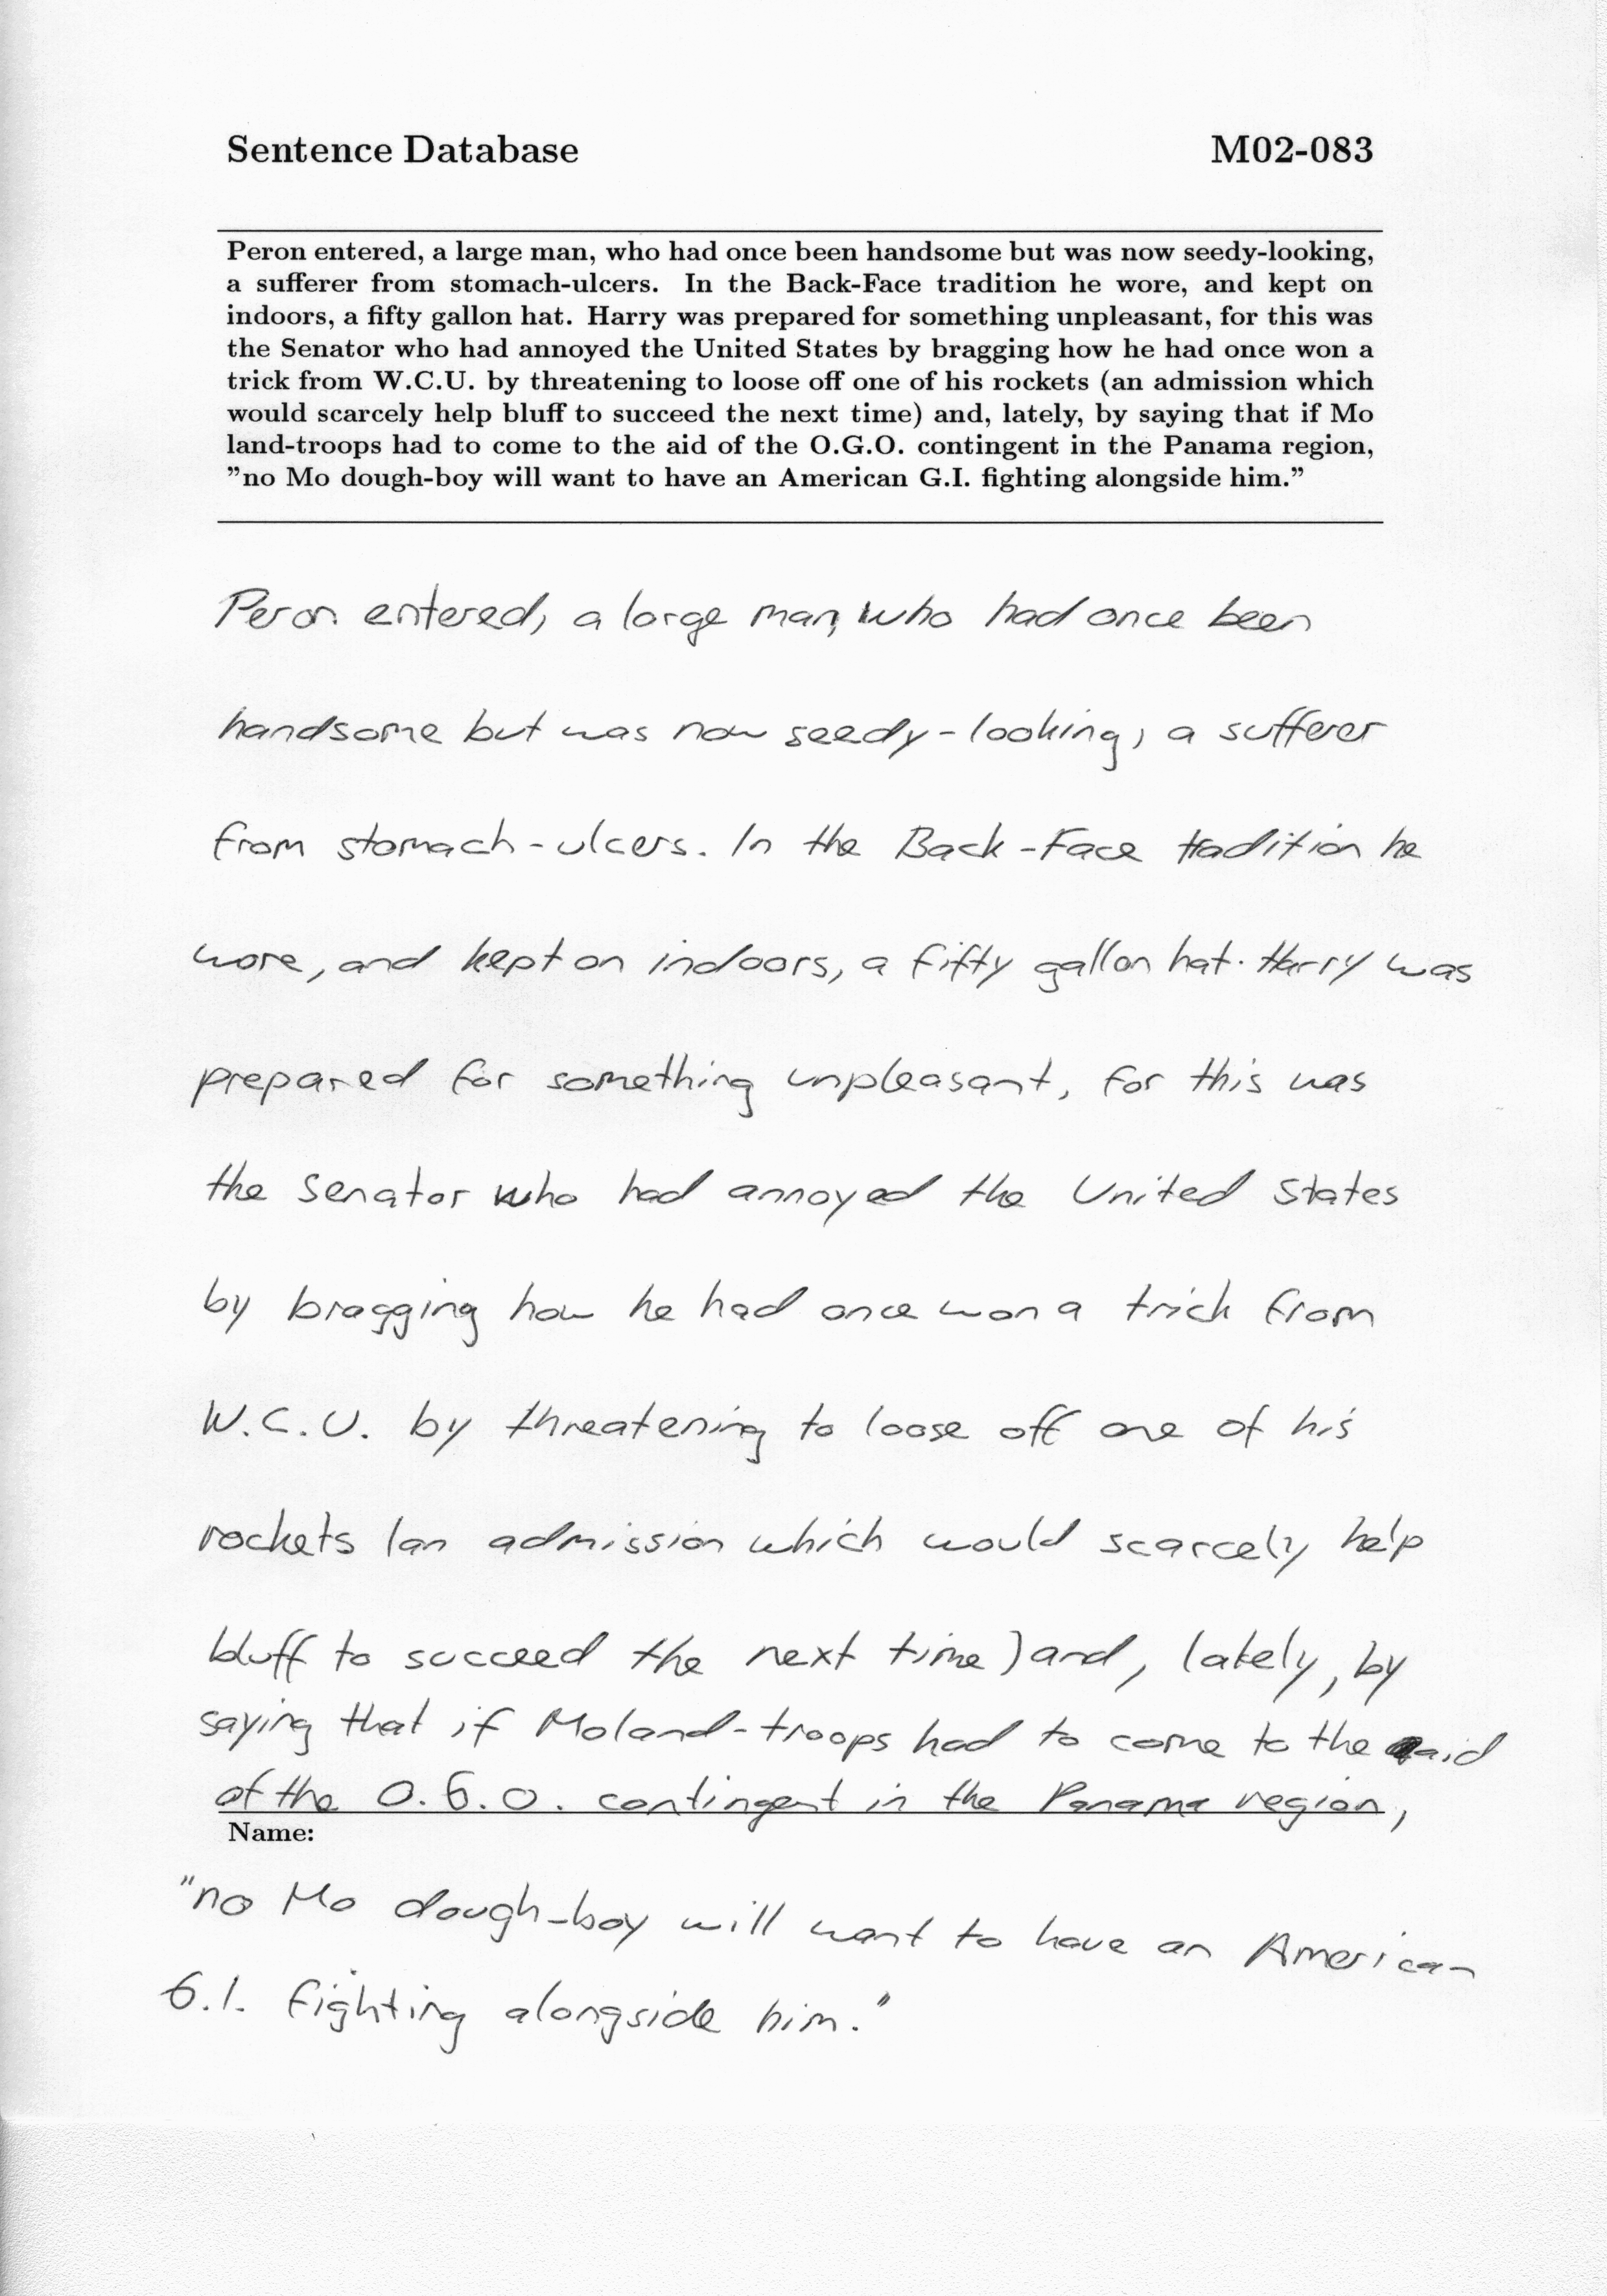 Sentence Database M02-083
Peron entered, a large man, who had once been handsome but was now seedy-looking,
a sufferer from stomach-ulcers. In the Back-Face tradition he wore, and kept on
indoors, a fifty gallon hat. Harry was prepared for something unpleasant, for this was
the Senator who had annoyed the United States by bragging how he had once won a
trick from W.C.U. by threatening to loose off one of his rockets (an admission which
would scarcely help bluff to succeed the next time) and, lately, by saying that if Mo
land-troops had to come to the aid of the O.G.O. contingent in the Panama region,
"no Mo dough-boy will want to have an American G.I. fighting alongside him."
Peron entered, a large man, who had once been
handsome but was now seedy-looking, a sufferer
from stomach-ulcers. In the Back-Face tradition he
wore, and kept on indoors, a fifty gallon hat. Harry was
prepared for something unpleasant, for this was
the Senator who had annoyed the United States
by bragging how he had once won a trick from
W.C.U. by threatening to loose off one of his
rockets (an admission which would scarcely help
bluff to succeed the next time) and, lately, by
saying that if Mo land-troops had to come to the aid
of the O.G.O. contingent in the Panama region,
Name:
"no Mo dough-boy will want to have an American
G.I. fighting alongside him."